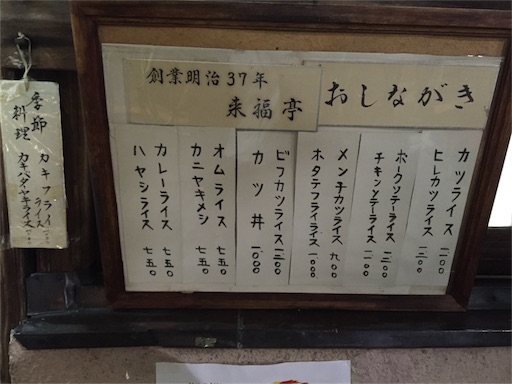 創業明治37年
来福亭
おしながき
カツライス 一一〇〇
ヒレカツライス 一二〇〇
ポークソテーライス 一二〇〇
チキンソテーライス 一一〇〇
メンチカツライス 九〇〇
ホタテフライライス 一〇〇〇
ビフカツライス 一三〇〇
カツ丼 一〇〇〇
オムライス 七五〇
カニヤキメシ 七五〇
カレーライス 七五〇
ハヤシライス 七五〇
季節料理
カキフライライス
カキバタヤキライス